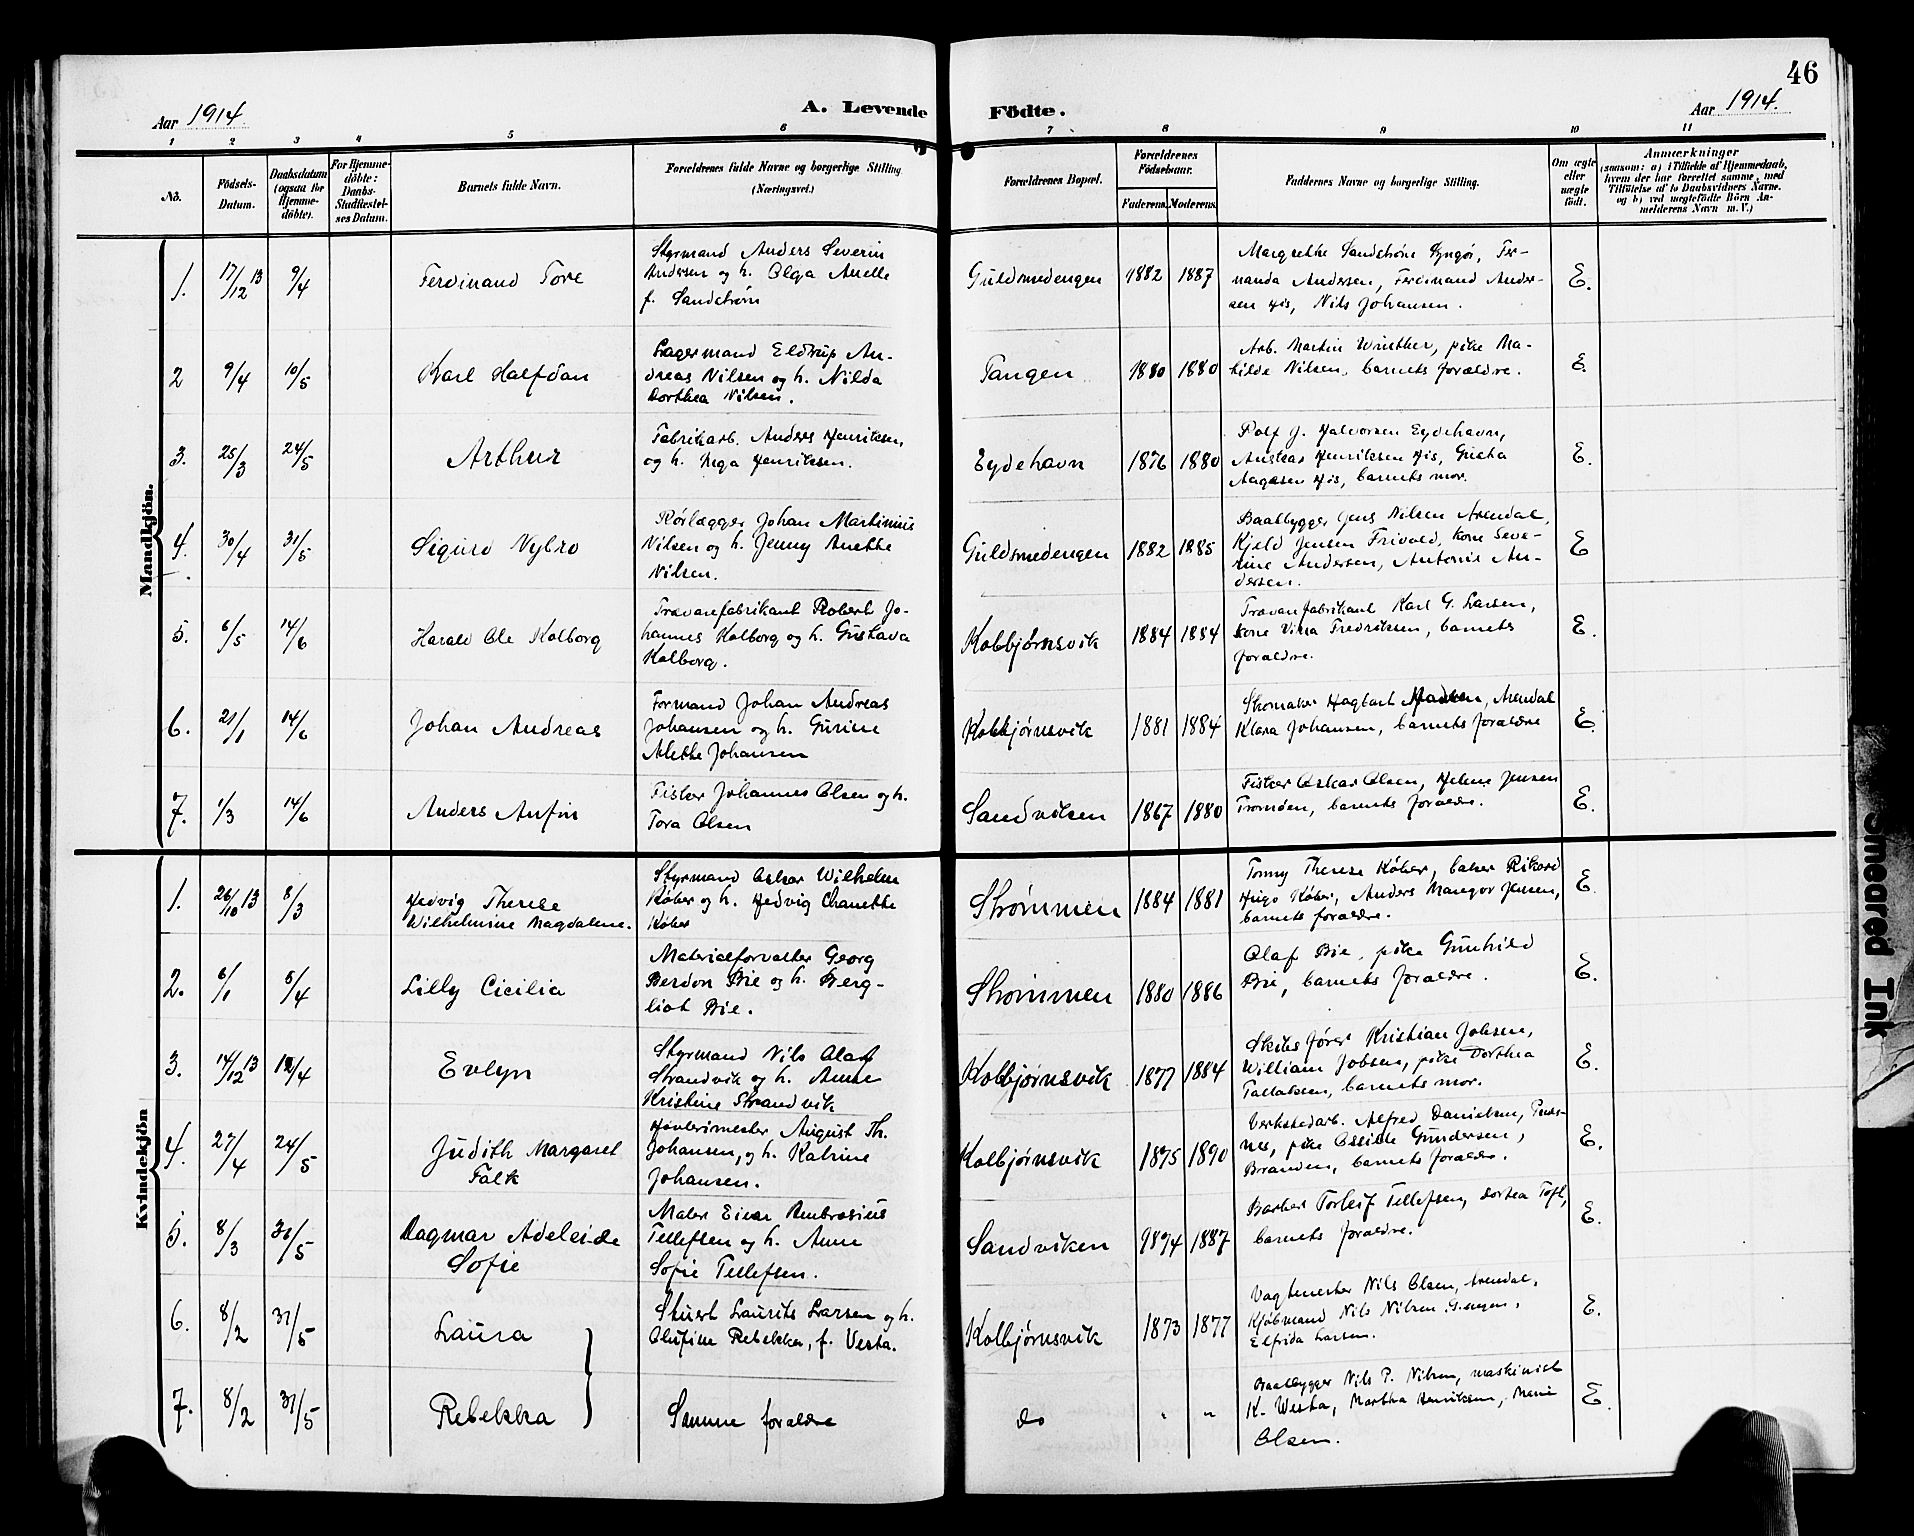 46
Aar 1914.
A. Levende Födte.
Aar 1914.
1 2 3 4 5 6 7 8 9 10 11
No.
Födsels-Datum.
Daabsdatum (ogsaa for Hjemme-döbte).
For Hjemme-döbte: Daabs-Stadfæstel-ses Datum.
Barnets fulde Navn.
Forældrenes fulde Navne og borgerlige Stilling (Næringsvei.)
Forældrenes Bopæl.
Forældrenes Födselsaar.
Faderens. Moderens.
Faddernes Navne og borgerlige Stilling.
Om ægte eller uægte født.
Anmærkninger
(saasom: a) i Tilfælde af Hjemmedaab,
hvem der har forrettet samme, med
Tilföielse af to Daabsvidners Navne.
og b) ved uægtefödte Börn An-
melderens Navn m. V.)
Mandkjön.
1. 17/12 13 9/4 Ferdinand Tore
Styrmand Anders Severin
Andersen og h. Olga Anelle
f. Sandstrøm
Guldsmedengen 1882 1887
Margrethe Sandstrøm Lyngør, Fer-
nanda Andersen, Ferdinand Ander-
sen His, Nils Johansen.
E.
2 9/4 10/5 Karl Halfdan
Lagermand Eldrup An-
dreas Nilsen og h. Nilda
Dorthea Nilsen.
Tangen 1880 1880
Arb. Martin Winther, pike Ma-
tilde Nilsen, barnets forældre.
E.
3. 25/3 24/5 Arthur
Fabrikarb. Anders Henriksen,
og h. Inga Henriksen.
Eydehavn 1876 1880
Rolf J. Halvorsen Eydehavn,
Henriksen His,
Aagesen His, barnets mor.
E.
4. 30/4 31/5 Sigurd Nybro
Rørlægger Johan Martinius
Nilsen og h. Jenny Anette
Nilsen.
Guldsmedengen 1882 1885
Baatbygger Jens Nilsen Arendal,
Kjeld Jensen Trivold, kone Seve-
rine Andersen, Antonie An-
dersen.
E
5. 6/5 14/6 Harald Ole Kolborg
Trævarefabrikant Robert Jo-
hannes Kolborg og h. Gustava
Kolborg.
Kolbjørnsvik 1884 1884
Trævarefabrikant Karl G. Larsen,
kone Vilma Fredriksen, barnets
forældre.
E.
6. 21/1 14/6 Johan Andreas
Formand Johan Andreas
Johansen og h. Gurine
Alette Johansen
Kolbjørnsvik 1881 1884
Skomaker Hagbart Madsen, Arendal
Klara Johansen, barnets forældre
E.
7. 1/3 14/6 Anders Anfin
Fisker Johannes Olsen og h.
Tora Olsen
Sandviken 1867 1880
Fisker Oskar Olsen, Helene Jensen
Tromøen, barnets forældre.
E.
Kvindekjön
1. 26/10 13 8/3 Hedvig Therese
Wilhelmine Magdalene.
Styrmand Oskar Wilhelm
Køber og h. Hedvig Chanette
Køber
Strømmen 1884 1881
Tonny Therese Køber, baker Rikard
Hugo Køber, Anders Mangor Jensen,
barnets forældre.
E.
2. 6/1 5/4 Lilly Cicilia
Materialforvalter Georg
Berdon Bie og h. Berg-
liot Bie.
Strømmen 1880 1886
Olaf Bie, pike Gunhild
Bie, barnets forældre.
E.
3. 14/12 13 /4 Evelyn
Styrmand Nils Olaf
Strandvik og h. Anne
Kristine Strandvik
Kolbjørnsvik 1877 1884
Skibsfører Kristian Jobsen,
William Jobsen, pike Dorthea
Tallaksen, barnets mor.
E.
4. 27/4 24/5 Judith Margaret
Falk
Høvlerimester August Th.
Johansen, og h. Katrine
Johansen.
Kolbjørnsvik 1875 1890
Verkstedarb. Alfred Danielsen, Puss-
nes, pike Ossilde Gundersen,
Branden, barnets forældre.
E.
5. 8/3 31/5 Dagmar Adeleide
Sofie
Maler Einar Ambrosius
Tellefsen og h. Anne
Sofie Tellefsen.
Sandviken 9874 1887
Barber Torleif Tellefsen, Dortea Tofl,
barnets forældre.
E.
6. 8/2 31/5 Laura
Stuert Laurits Larsen og h.
Olufine Rebekka, f. Vesta.
Kolbjørnsvik 1873 1877
Vagtmester Nils Olsen, Arendal,
Kjøbmand Nils Nilsen
Elfrida Larsen.
E.
7. 8/2 31/5 Rebekka
Samme forældre
do " "
Baatbygger Nils P. Nilsen, maskinist
K. Westa, Martha Henriksen, Marie
Olsen.
E.
Smeared Ink